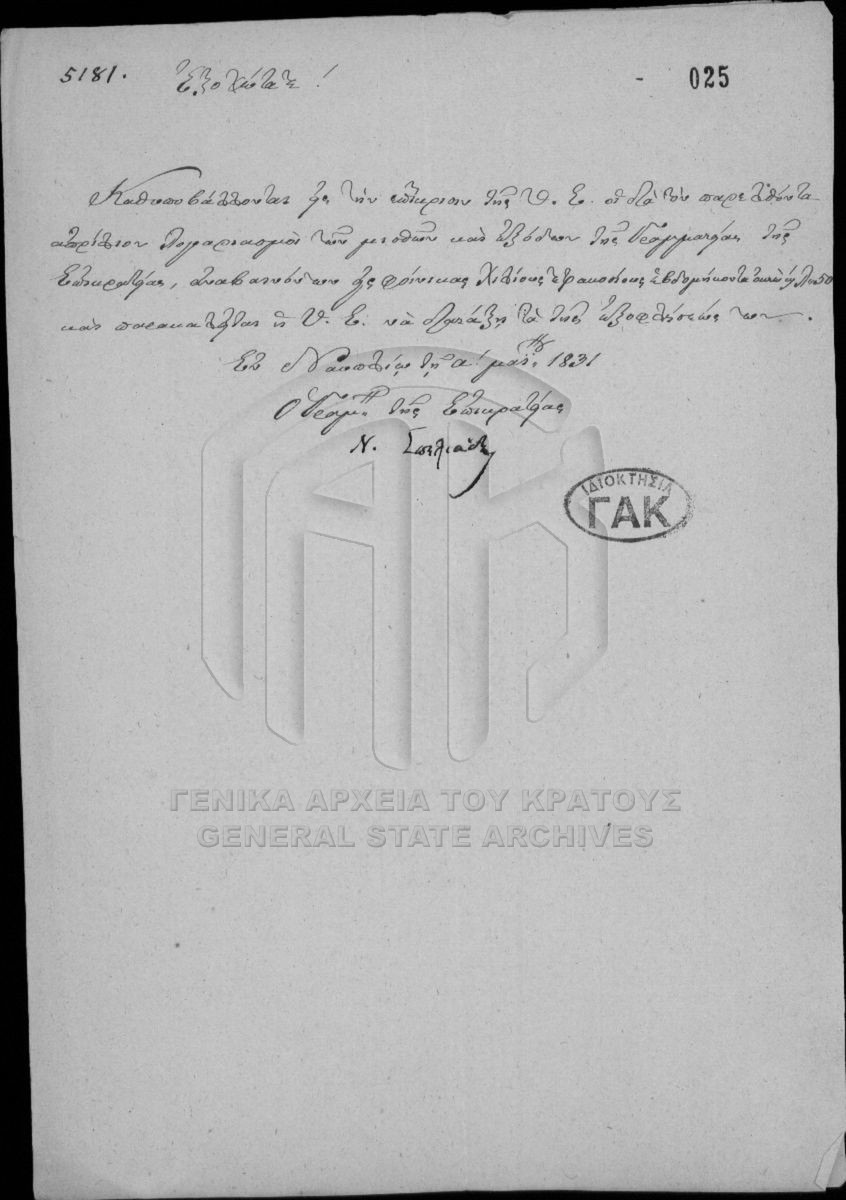 5181.
Ἐξοχώτατε!
025
Καθυποβάλλονται εἰς τὴν ἐπίκρισιν τῆς Υ. Ε. οἱ διὰ τὸν παρελθόντα
ἀπρίλιον λογαριασμοὶ τῶν μισθῶν καὶ ἐξόδων τῆς Γραμματείας τῆς
Ἐπικρατείας, ἀναβαινόντων εἰς φοίνικας χιλίους τετρακοσίους ἑβδομήκοντα 50
καὶ παρακαλεῖται ἡ Υ. Ε. νὰ διατάξῃ τὰ τῆς ἐξοφλήσεώς των.
Ἐν Ναυπλίῳ τῇ α: μαΐου 1831
Ὁ Γραμ. τῆς Ἐπικρατείας
Ν. Σπηλιάδης
ΙΔΙΟΚΤΗΣΙΑ
ΓΑΚ
ΓΕΝΙΚΑ ΑΡΧΕΙΑ ΤΟΥ ΚΡΑΤΟΥΣ
GENERAL STATE ARCHIVES